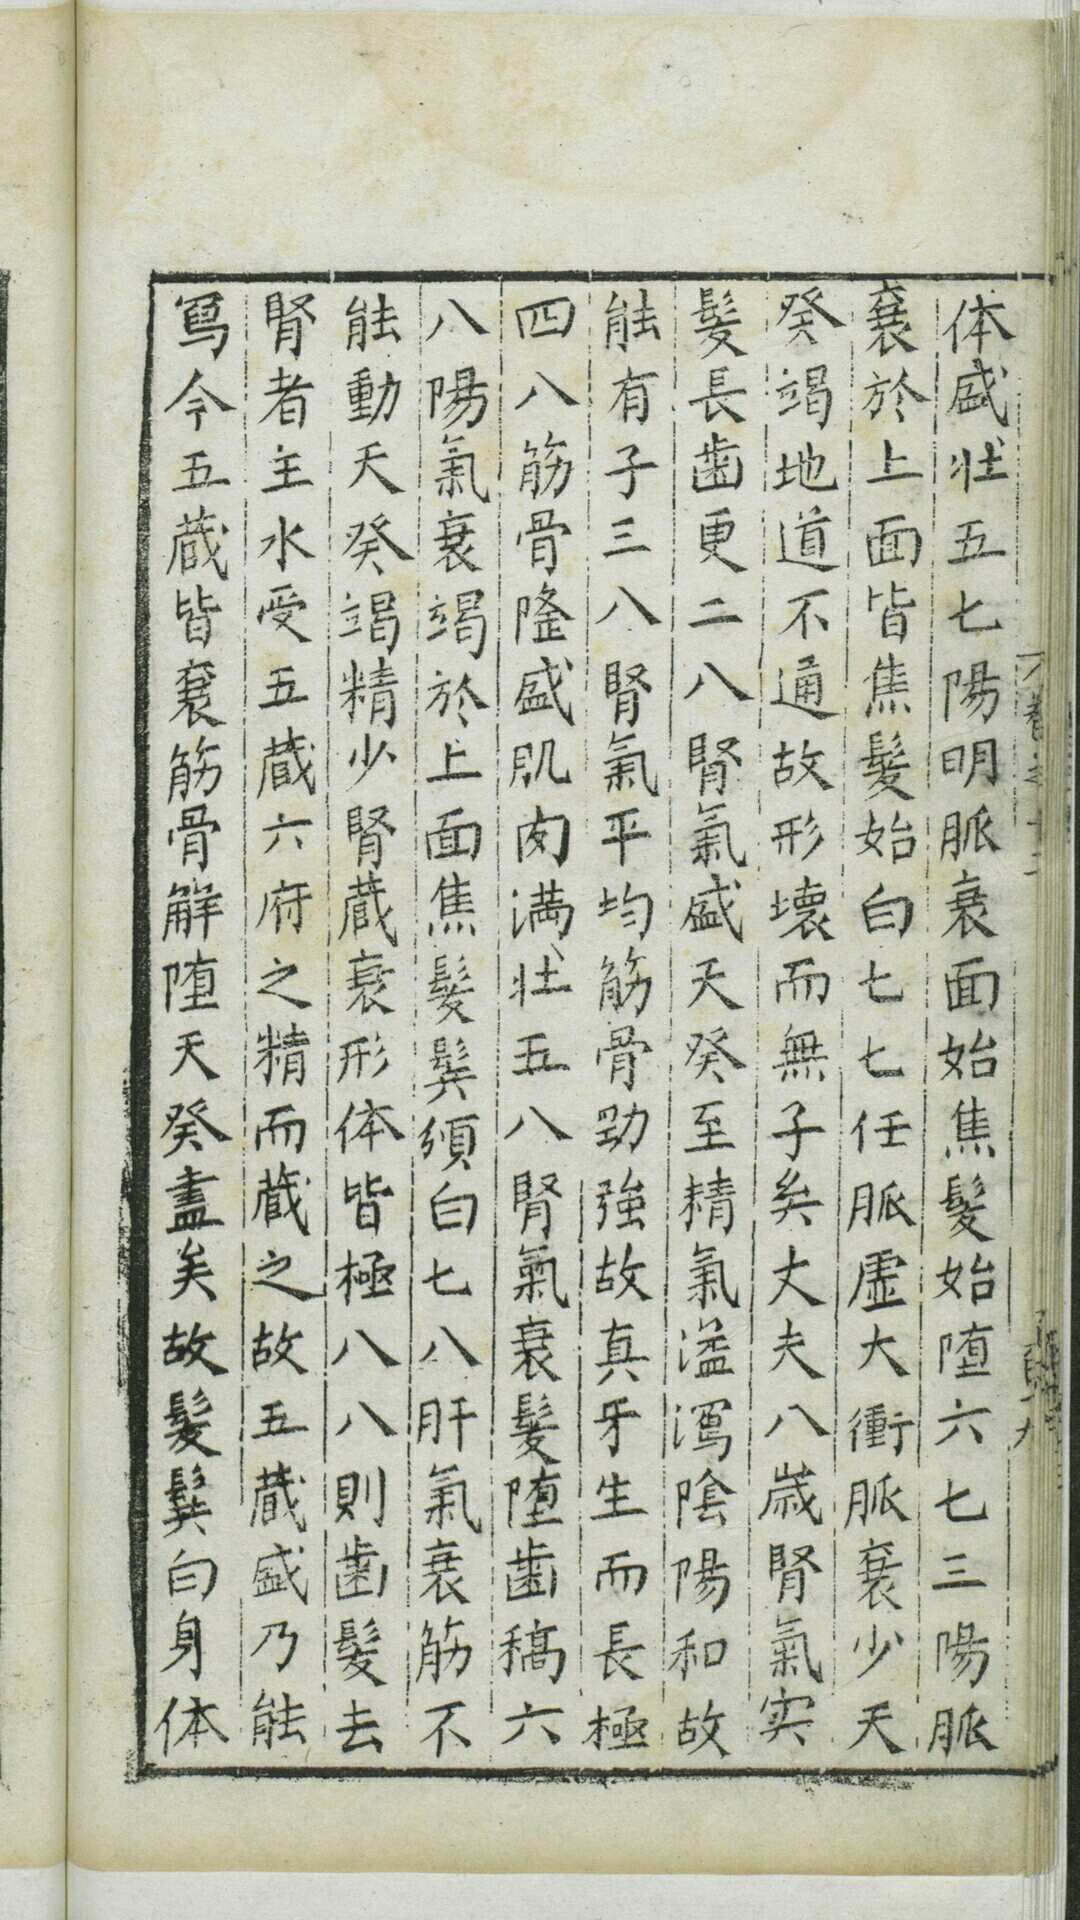 体盛壮五七陽明脈衰面始焦髪始堕六七三陽脈
衰於上面皆焦髪始白七七任脈虚大衝脈衰少天
癸竭地道不通故形壊而無子矣丈夫八歳腎氣実
髪長歯更二八腎氣盛天癸至精氣溢瀉陰陽和故
能有子三八腎氣平均筋骨勁強故真牙生而長極
四八筋骨隆盛肌肉満壮五八腎氣衰髪堕歯槁六
八陽氣衰竭於上面焦髪鬢頒白七八肝氣衰筋不
能動天癸竭精少腎蔵衰形体皆極八八則歯髪去
腎者主水受五蔵六府之精而蔵之故五蔵盛乃能
寫今五蔵皆衰筋骨解堕天癸盡矣故髪鬢白身体